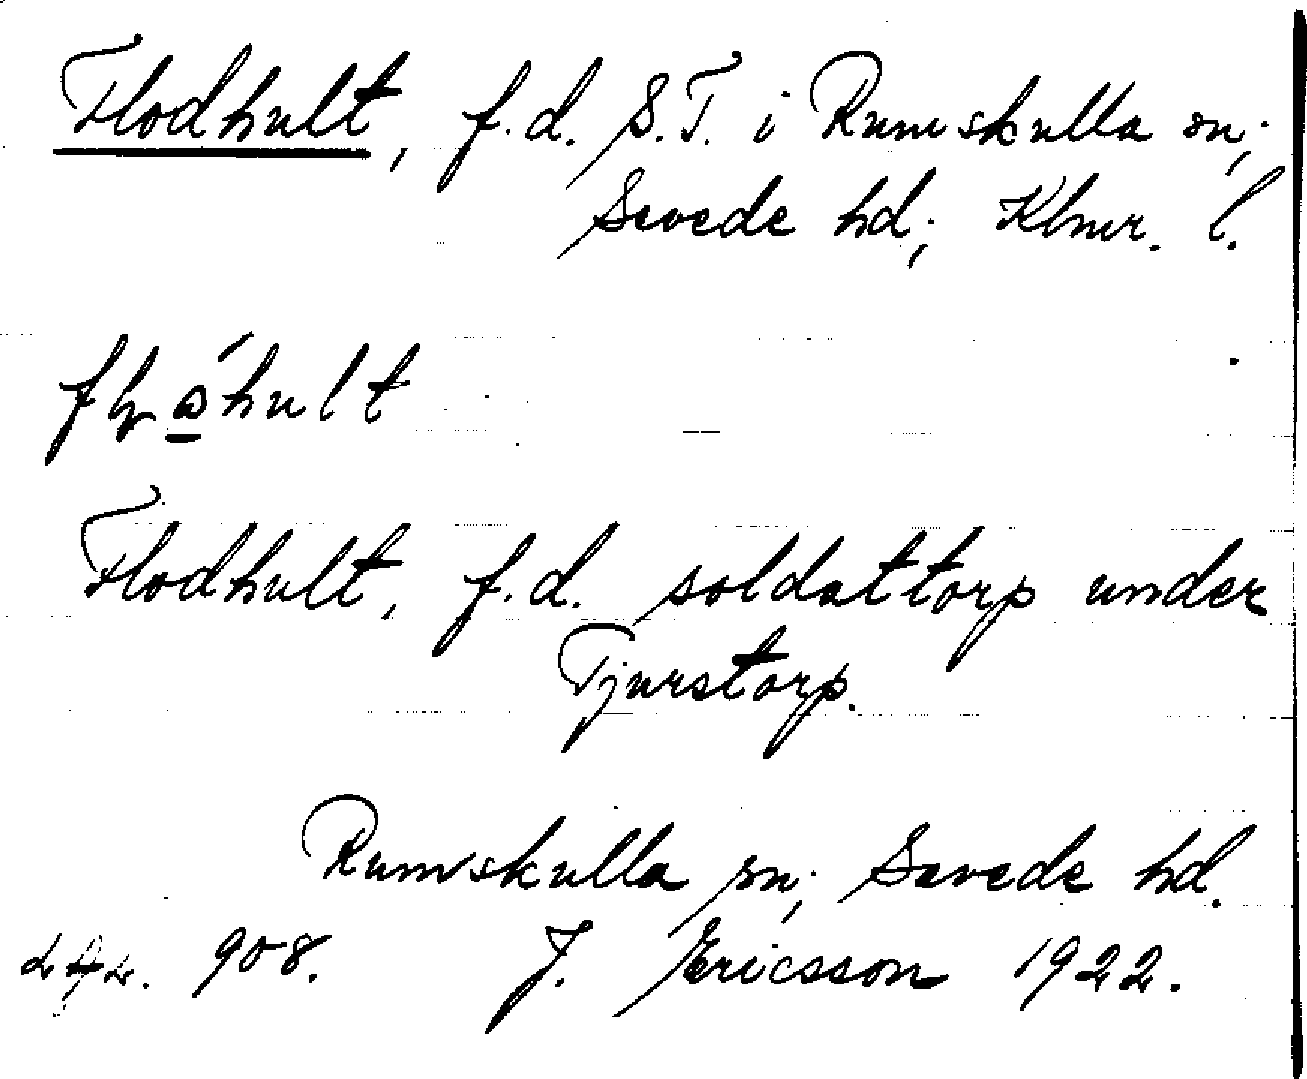 Flodhult, f.d. S.T. i Rumskulla sn;
Sevede hd; Klmr. l.
Flodhult, f.d. soldattorp under
Tjurstorp.
Rumskulla sn; Sevede hd.
908. J. Ericsson 1922.